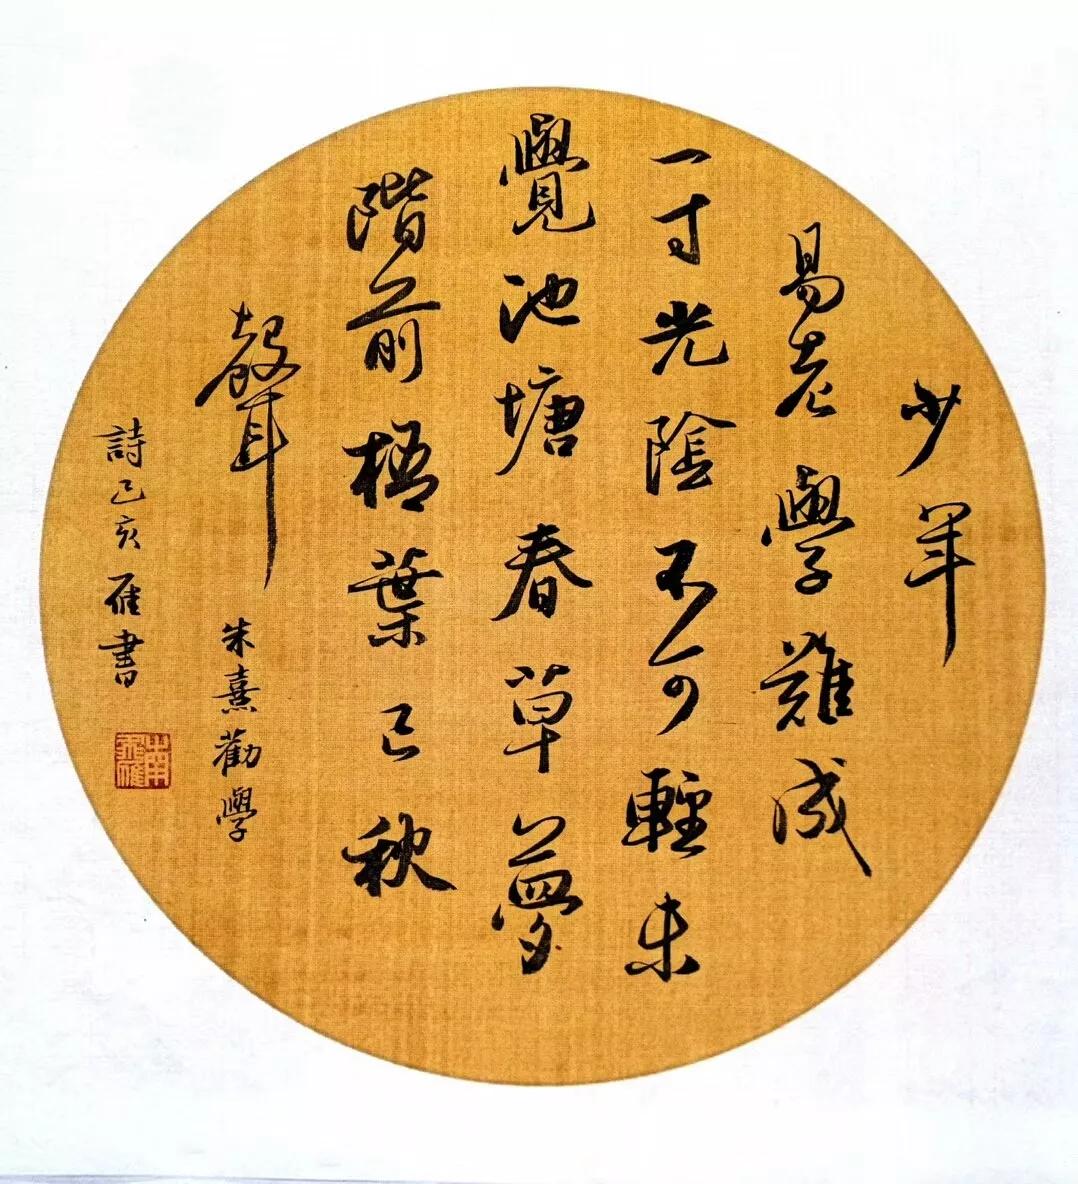 少年
易老學難成
一寸光陰不可輕未
覺池塘春草夢
階前梧葉已秋
聲
朱熹勸學
詩己亥雁書